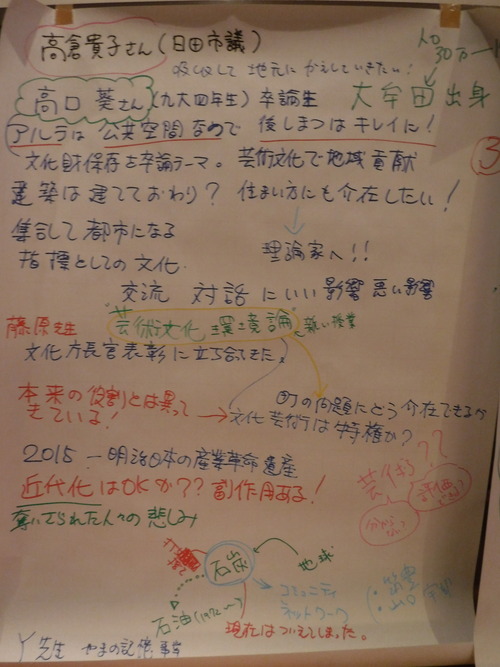 高倉貴子さん(日田市議)
人口30万→1
吸収して地元にかえしていきたい!
高口 葵さん(九大四年生)卒論生 大牟田出身
アルテは公共空間なので 後しまつはキレイに!
文化財保存を卒論テーマ。芸術文化で地域貢献
建築は建てておわり? 住まい方にも介在したい!
3
集合して都市になる
指標としての文化.
理論家へ!!
交流 対話にいい影響 悪い影響
藤原先生
"芸術文化環境論"
授業
文化庁長官表彰に立ち会てきた
本来の役割とは異って
きている!
町の問題にどう介在できるか
→文化芸術は特権か?
2015 - 明治日本の産業革命遺産
近代化はOKか?? 副作用ある!
奪いさられた人々の悲しみ
芸術も??
石炭
地球
石油(1972〜)
コミュニティ
ネットワーク
・筑豊
現在はついえてしまった。
Y先生 やまの記憶